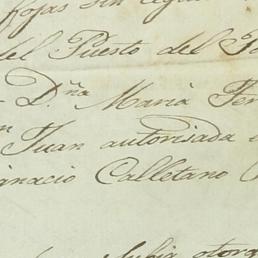 fojas sin
del Puesto del
Dña María Fer
Juan autorisada
gnacio Calletano
Subir otorg